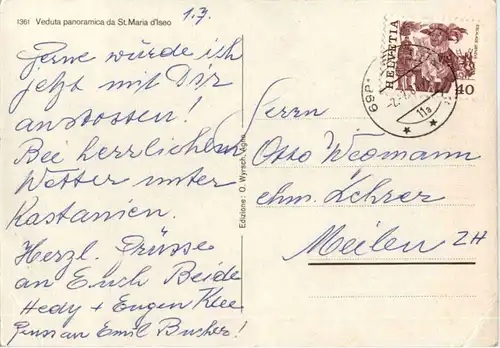 1361 Veduta panoramica da St. Maria d'Iseo
1.7.
Gerne würde ich
jetzt mit Dir
anstossen!
Bei herrlichem
Wetter unter
Kastanien.
Herzl. Grüsse
an Euch Beide
Hedy + Eugen Klee
Gruss an Emil Bucher!
Edizione: O. Wyrsch, Agno
HELVETIA
40
11a
Herrn
Otto Wedmann
ehm. Lehrer
Meilen ZH